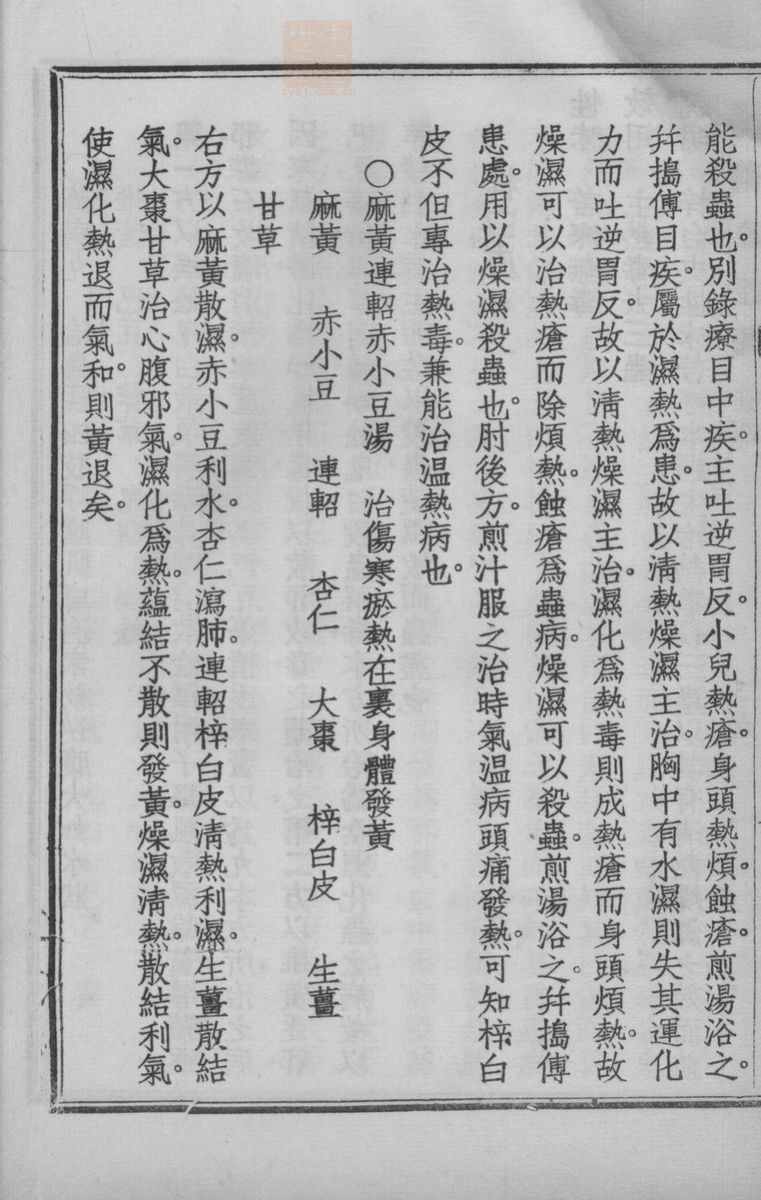 能殺蟲也。別錄療目中疾。主吐逆胃反。小兒熱瘡。身頭熱煩。蝕瘡。煎湯浴之。
幷搗傅目疾。屬於濕熱爲患。故以淸熱燥濕主治。胸中有水濕則失其運化
力而吐逆胃反。故以淸熱燥濕主治。濕化爲熱毒則成熱瘡而身頭煩熱。故
燥濕可以治熱瘡而除煩熱。蝕瘡爲蟲病。燥濕可以殺蟲。煎湯浴之。幷搗傅
患處。用以燥濕殺蟲也。肘後方。煎汁服之治時氣温病頭痛發熱。可知梓白
皮不但專治熱毒。兼能治温熱病也。
○麻黃連軺赤小豆湯　治傷寒瘀熱在裏身體發黃
麻黃　赤小豆　連軺　杏仁　大棗　梓白皮　生薑
甘草
右方以麻黃散濕。赤小豆利水。杏仁瀉肺。連軺梓白皮淸熱利濕。生薑散結
氣。大棗甘草治心腹邪氣。濕化爲熱。蘊結不散則發黃。燥濕淸熱。散結利氣。
使濕化熱退而氣和。則黃退矣。
中
世
zysj.com.cn